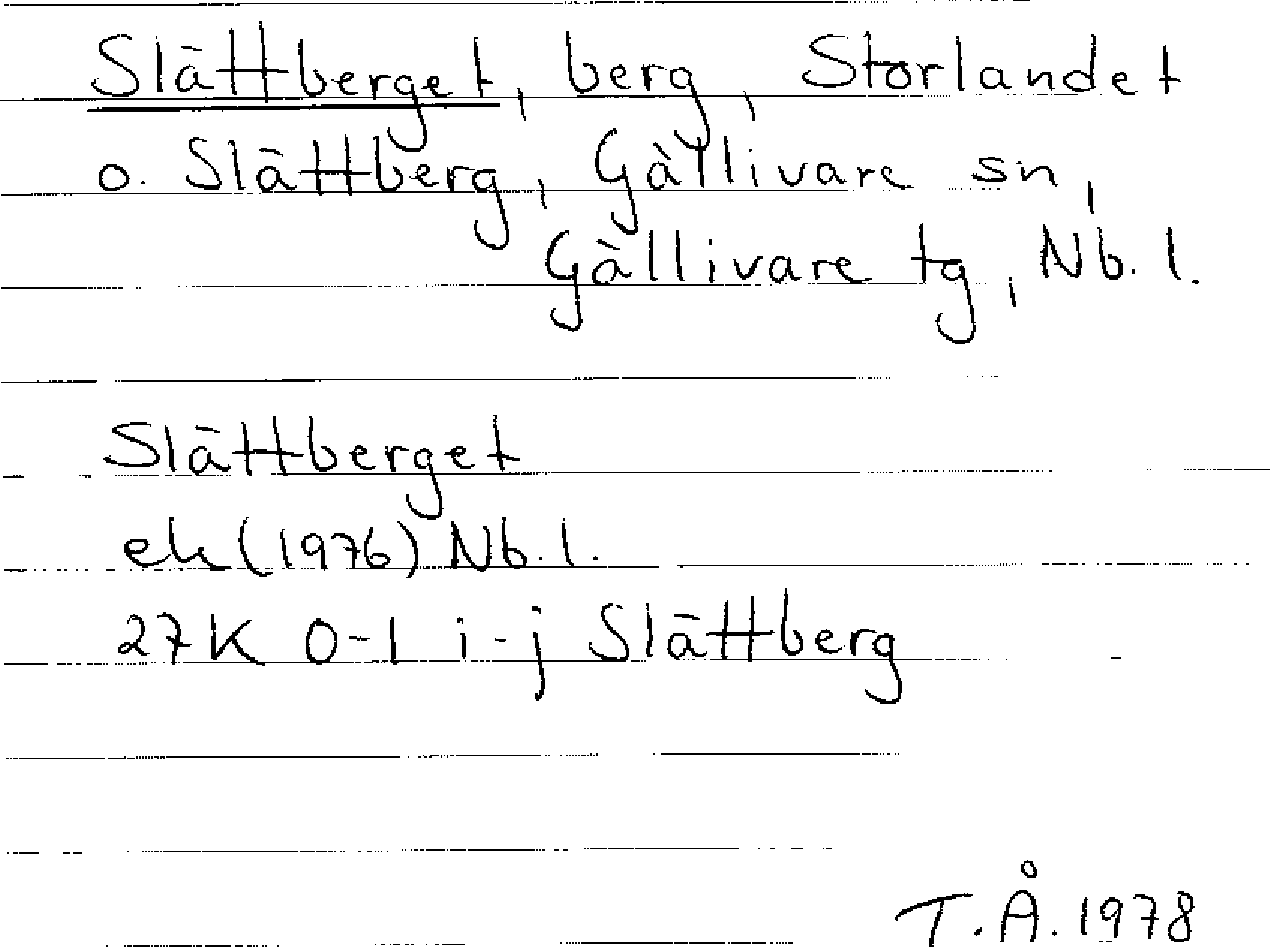 Slättberget, berg, Storlandet
o. Slättberg, Gällivare sn,
Gällivare tg, Nb. l.
Slättberget
ek (1976) Nb. l.
27K 0-1 i-j Slättberg
T.Å. 1978